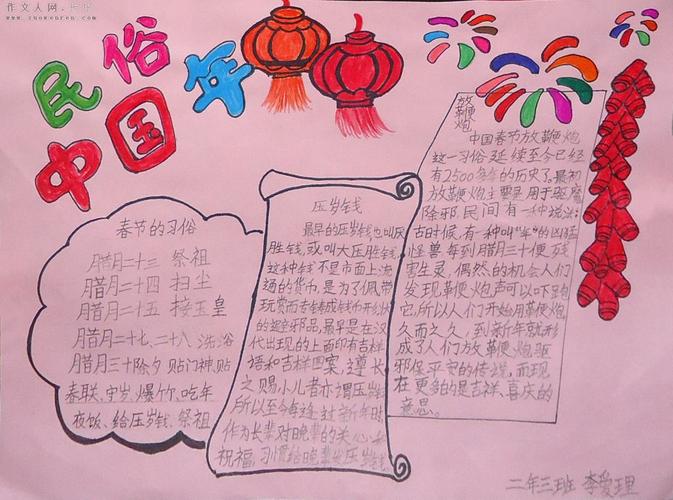 作文人网
www.zuowenren.com
民俗
中国年
春节的习俗
腊月二十三 祭祖
腊月二十四 扫尘
腊月二十五 接玉皇
腊月二十七、二十八 洗浴
腊月三十除夕 贴门神、贴
春联、守岁、爆竹、吃年
夜饭、给压岁钱、祭祖
压岁钱
最早的压岁钱也叫厌
胜钱，或叫大压胜钱，
这种钱不是市面上流
通的货币，是为了佩带
玩赏而专铸成钱币形状
的避邪品，最早是在汉
代出现的上面印有吉祥
语和吉祥图案，尊长
之赐小儿者亦谓压岁
所以至今每逢过新年时
作为长辈对晚辈的关心和
祝福，习惯给晚辈发压岁钱
放鞭炮
中国春节放鞭炮
这一习俗延续至今已经
有2500多年的历史了。最初
放鞭炮主要是用于驱魔
除邪，民间有一种说法：
古时候，有一种叫“年”的凶猛
怪兽每到腊月三十便残
害生灵，偶然的机会人们
发现鞭炮声可以吓跑
它，所以人们开始用鞭炮
久而久之，到新年就形
成了人们放鞭炮驱
邪保平安的传统，而现
在更多的是吉祥、喜庆的
意思。
二年三班 李爱理